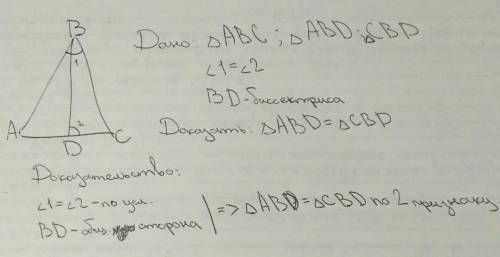 B
1
A
2
C
D
Дано: △ABC; △ABD; △CBD
∠1=∠2
BD-биссектриса
Доказать: △ABD=△CBD
Доказательство:
∠1=∠2-по усл.
BD-общ. сторона | => △ABD=△CBD по 2 признаку